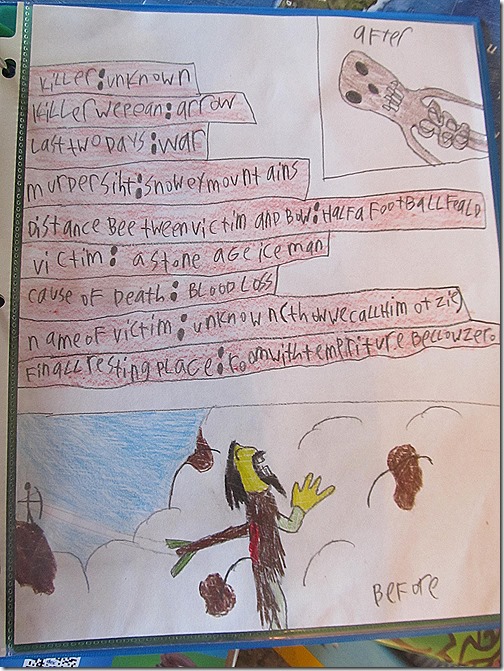 after
killer:unknown
killer werean:arrow
last two days:war
murdersiht:snoweymountains
Distance Beetween victim and Bow:Half a football feald
victim: a stone age ice man
cause of Death: Blood loss
name of victim:unknown(thowwecallHim otzie)
finall resting place:room with tempriture Bellow zero
Before